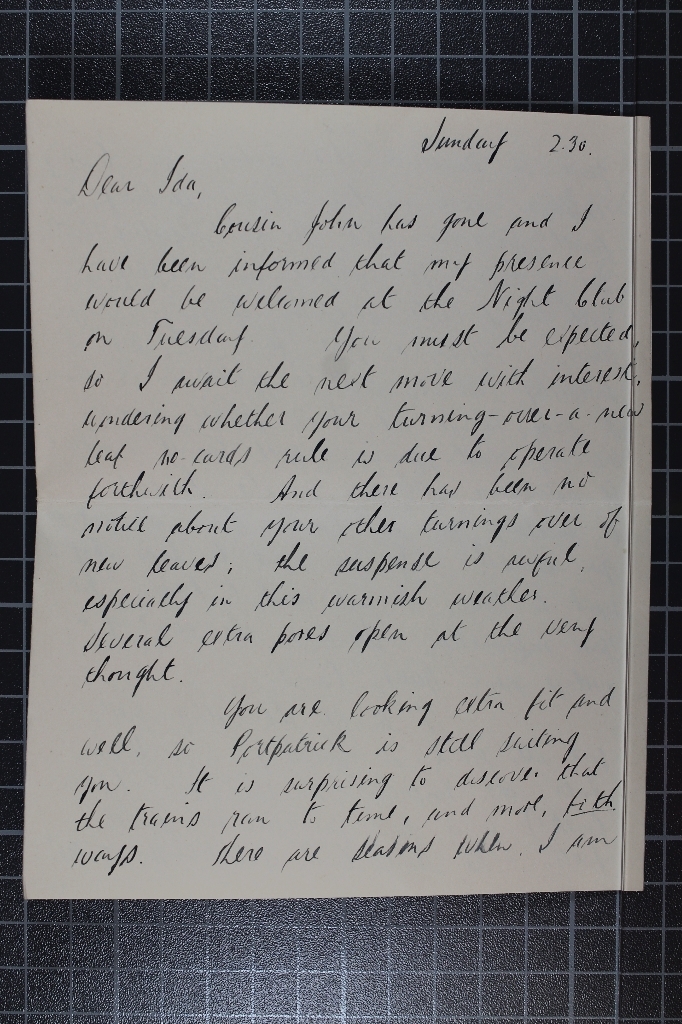 Sunday 2.30.
Dear Ida,
Cousin John has gone and I
have been informed that my presence
would be welcomed at the Night Club
on Tuesday. You must be expected,
so I await the next move with interest,
wondering whether your turning-over-a-new
leaf no-cards rule is due to operate
forthwith. And there has been no
notice about your other turnings over of
new leaves; the suspense is awful,
especially in this warmish weather.
Several extra pores open at the very
thought.
You are looking extra fit and
well, so Portpatrick is still suiting
you. It is surprising to discover that
the trains ran to time, and more, both
ways. There are seasons when I am